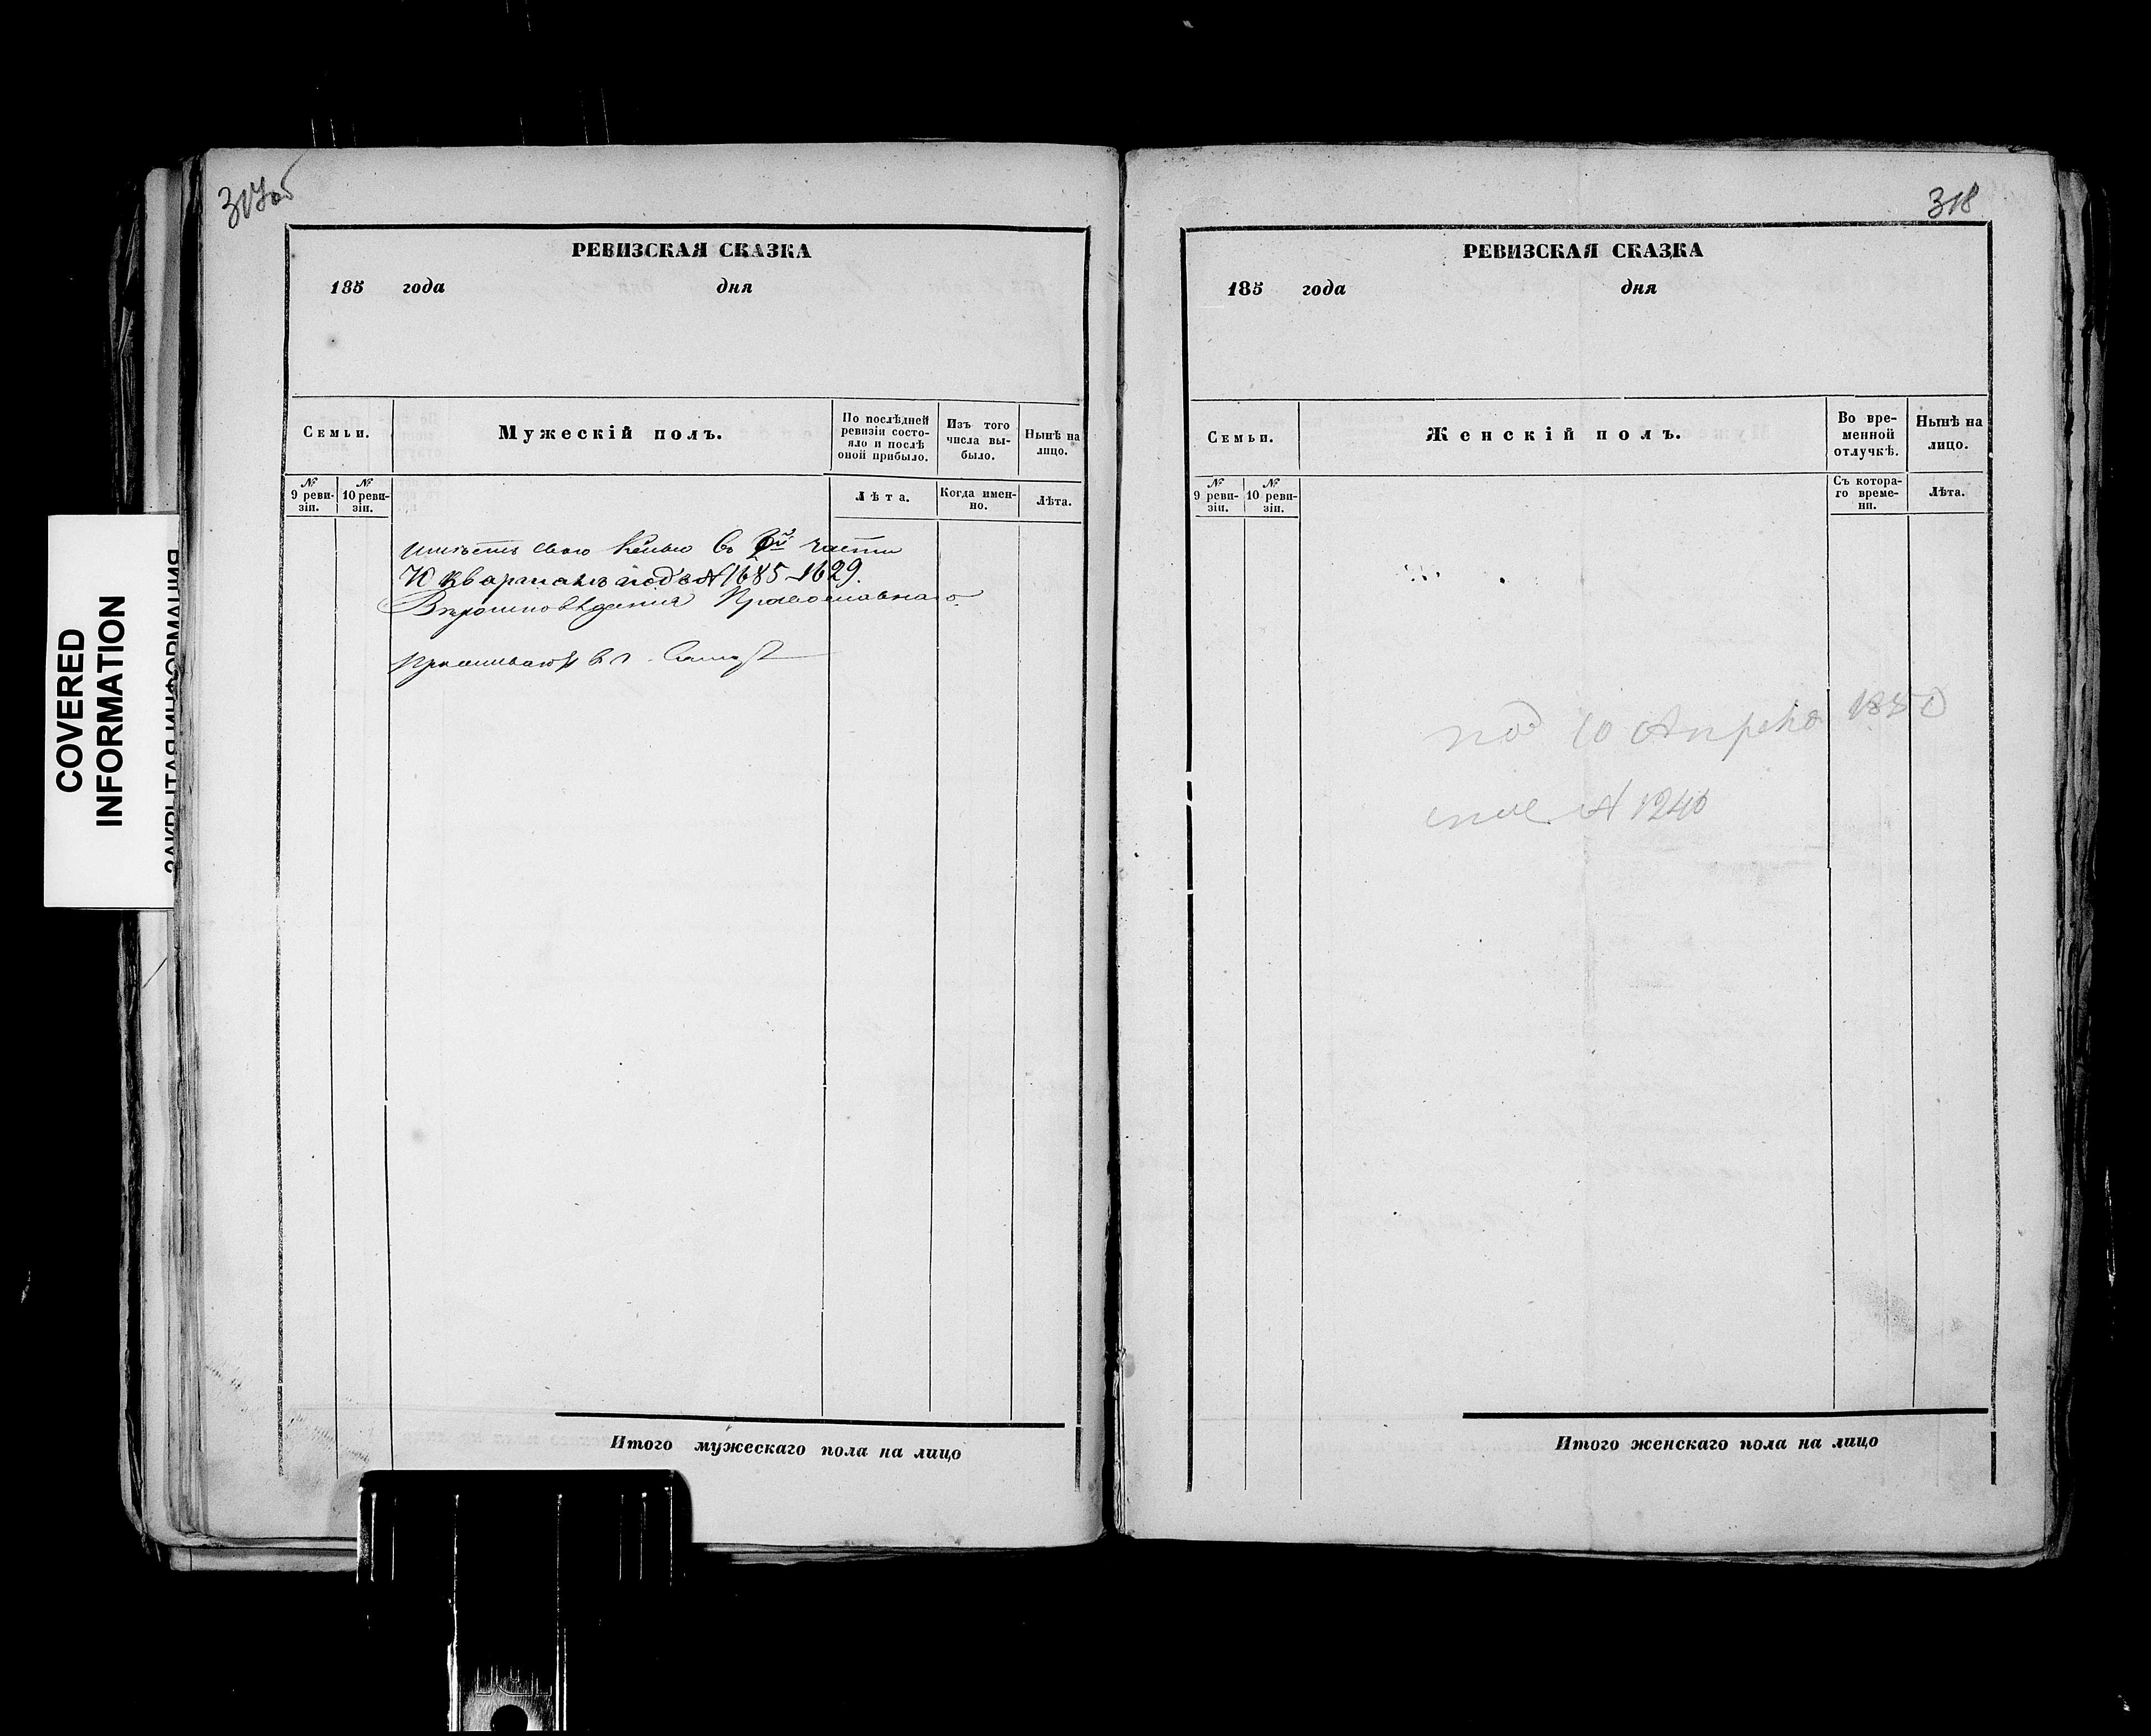 COVERED
INFORMATION
ЗАКРЫТАЯ ИНФОРМАЦИЯ
317об
РЕВИЗСКАЯ СКАЗКА
185 года дня
Семьи.
Мужескій полъ.
По послѣдней
ревизіи состо-
яло и послѣ
оной прибыло.
Изъ того
числа вы-
было.
Нынѣ на
лицо.
№
9 реви-
зіи.
№
10 реви-
зіи.
Лѣта.
Когда имен-
но.
Лѣта.
имѣетъ свою въ части
Кварталѣ подъ № 1685-1629.
Вѣроисповѣдания Православнаго.
проживаю въ г.
Итого мужескаго пола на лицо
318
РЕВИЗСКАЯ СКАЗКА
185 года дня
Семьи.
Женскій полъ.
Во вре-
менной
отлучкѣ.
Нынѣ на
лицо.
№
9 реви-
зіи.
№
10 реви-
зіи.
Съ котора-
го време-
ни.
Лѣта.
под 10 Апреля 1850
№ 1240
Итого женскаго пола на лицо